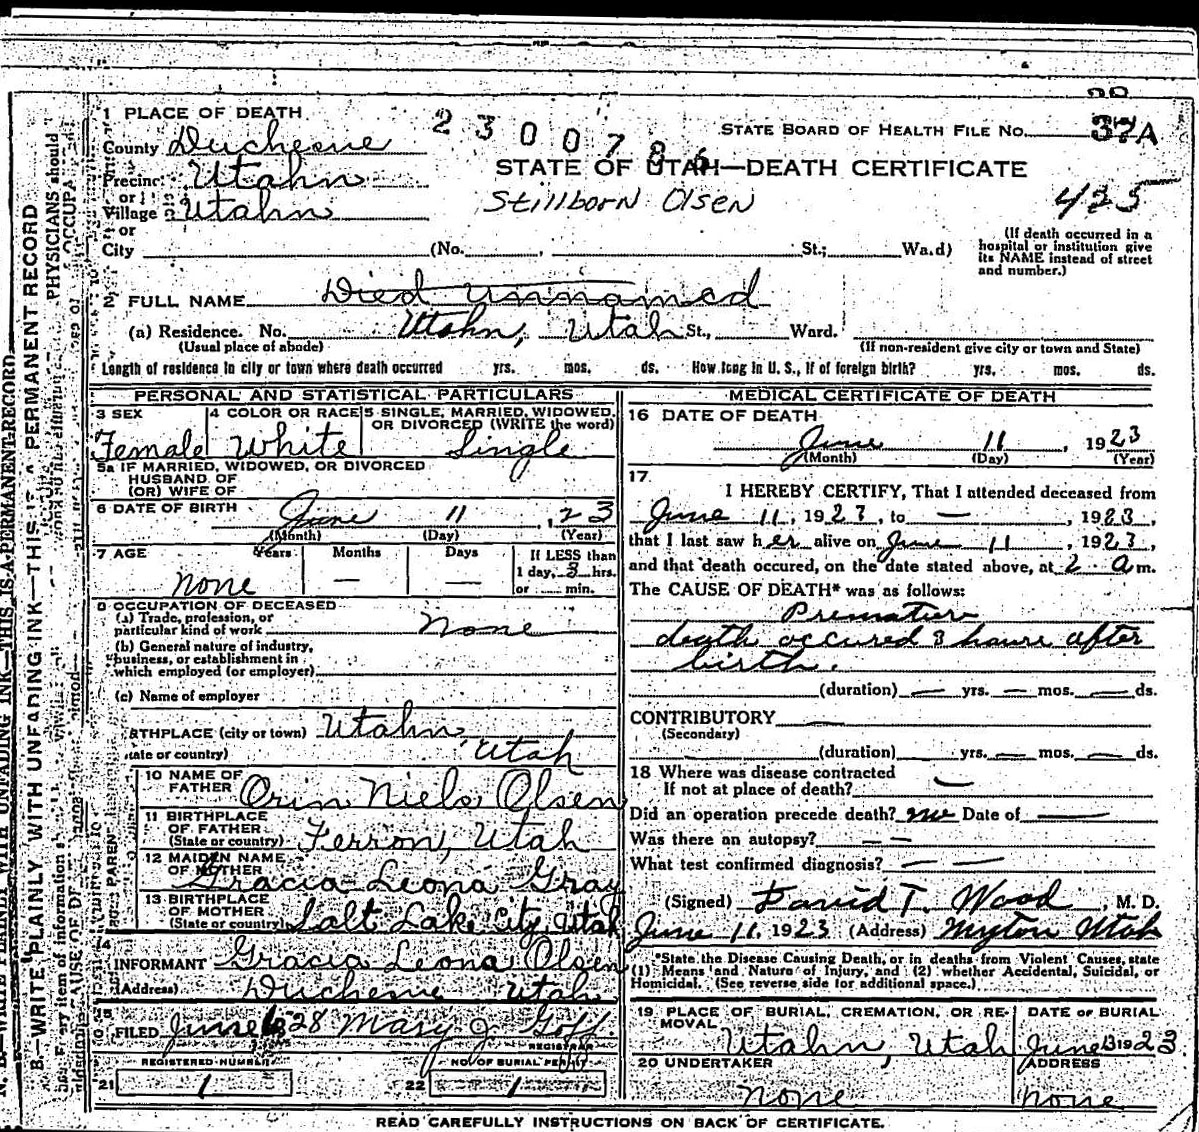 1 PLACE OF DEATH
2300786
STATE BOARD OF HEALTH FILE No. 37A
County Duchesne
STATE OF UTAH—DEATH CERTIFICATE
Precinct Utahn
or
Village Utahn
Stillborn Olsen
425
or
City (No. , St.; Ward)
(If death occurred in a
hospital or institution give
its NAME instead of street
and number.)
2 FULL NAME Died unnamed
(a) Residence. No. Utahn, Utah St., Ward.
(Usual place of abode)
(If non-resident give city or town and State)
Length of residence in city or town where death occurred yrs. mos. ds. How long in U. S., if of foreign birth? yrs. mos. ds.
PERSONAL AND STATISTICAL PARTICULARS
3 SEX
Female
4 COLOR OR RACE
White
5 SINGLE, MARRIED, WIDOWED,
OR DIVORCED (WRITE the word)
Single
5a IF MARRIED, WIDOWED, OR DIVORCED
HUSBAND OF
(OR) WIFE OF
6 DATE OF BIRTH
June 11, 23
(Month) (Day) (Year)
7 AGE Years Months Days
none — —
If LESS than
1 day, 3 hrs.
or min.
8 OCCUPATION OF DECEASED
(a) Trade, profession, or
particular kind of work none
(b) General nature of industry,
business, or establishment in
which employed (or employer)
(c) Name of employer
RTHPLACE (city or town) Utahn,
tate or country) Utah
PARENT
10 NAME OF
FATHER Orin Niels Olsen
11 BIRTHPLACE
OF FATHER
(State or country) Ferron, Utah
12 MAIDEN NAME
OF MOTHER
Gracia Leona Gray
13 BIRTHPLACE
OF MOTHER
(State or country) Salt Lake City, Utah
14
INFORMANT Gracia Leona Olsen
(Address) Duchesne Utah
FILED June 28 Mary J. Goff
REGISTRAR
REGISTERED NUMBER
21 1
NO. OF BURIAL PERMIT
22 1
MEDICAL CERTIFICATE OF DEATH
16 DATE OF DEATH
June 11, 1923
(Month) (Day) (Year)
17
I HEREBY CERTIFY, That I attended deceased from
June 11, 1923, to —, 1923,
that I last saw her alive on June 11, 1923,
and that death occured, on the date stated above, at 2 a m.
The CAUSE OF DEATH* was as follows:
Prematur
death occured 3 hours after
birth.
(duration) — yrs. — mos. — ds.
CONTRIBUTORY —
(Secondary)
(duration) yrs. — mos. — ds.
18 Where was disease contracted
If not at place of death? —
Did an operation precede death? no Date of —
Was there an autopsy? — —
What test confirmed diagnosis? — —
(Signed) David T. Wood, M. D.
June 11, 1923 (Address) Myton Utah
*State the Disease Causing Death, or in deaths from Violent Causes, state
(1) Means and Nature of Injury, and (2) whether Accidental, Suicidal, or
Homicidal. (See reverse side for additional space.)
19 PLACE OF BURIAL, CREMATION, OR RE-
MOVAL
Utahn, Utah
DATE OF BURIAL
June 13 1923
20 UNDERTAKER
none
ADDRESS
none
READ CAREFULLY INSTRUCTIONS ON BACK OF CERTIFICATE.
B.—WRITE PLAINLY WITH UNFADING INK—THIS IS A PERMANENT RECORD
PHYSICIANS should